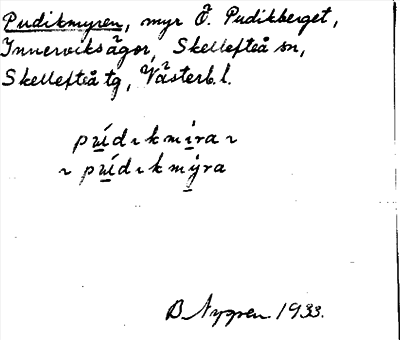 Pudikmyren, myr Ö. Pudikberget,
Innerviksägor, Skellefteå sn,
Skellefteå tg, Västerb. l.
púdıkmíra ı
ı púdıkmýra
B Nygren 1933.